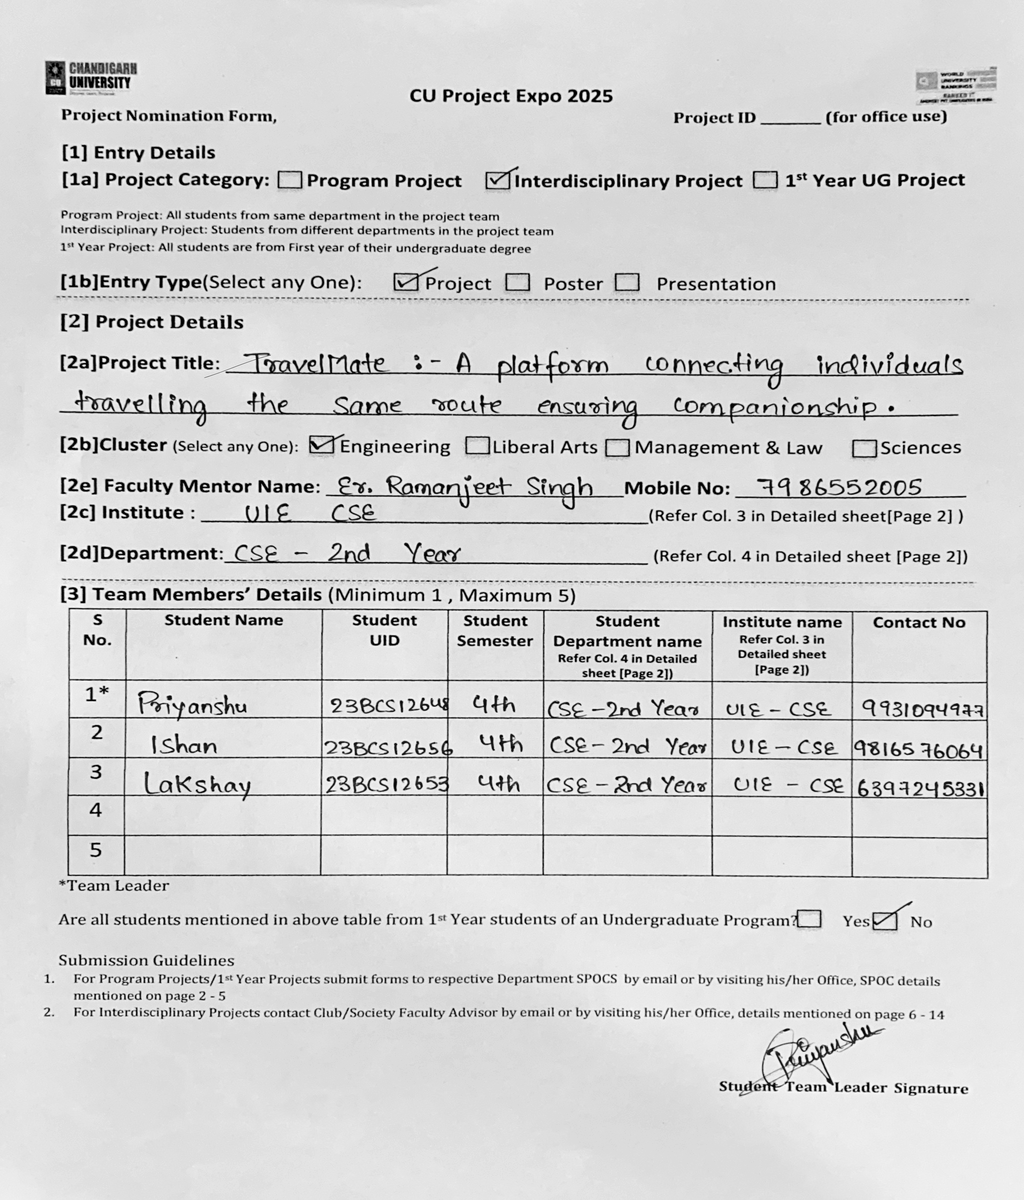 CHANDIGARH
UNIVERSITY
CU
WORLD
UNIVERSITY
RANKINGS
CU Project Expo 2025
Project Nomination Form,
Project ID ______ (for office use)
[1] Entry Details
[1a] Project Category: Program Project Interdisciplinary Project 1st Year UG Project
Program Project: All students from same department in the project team
Interdisciplinary Project: Students from different departments in the project team
1st Year Project: All students are from First year of their undergraduate degree
[1b]Entry Type(Select any One): Project Poster Presentation
[2] Project Details
[2a]Project Title: TravelMate :- A platform connecting individuals
travelling the same route ensuring companionship.
[2b]Cluster (Select any One): Engineering Liberal Arts Management & Law Sciences
[2e] Faculty Mentor Name: Er. Ramanjeet Singh Mobile No: 7986552005
[2c] Institute : UIE CSE (Refer Col. 3 in Detailed sheet[Page 2] )
[2d]Department: CSE - 2nd Year (Refer Col. 4 in Detailed sheet [Page 2])
[3] Team Members' Details (Minimum 1 , Maximum 5)
S No. Student Name Student UID Student Semester Student Department name Refer Col. 4 in Detailed sheet [Page 2]) Institute name Refer Col. 3 in Detailed sheet [Page 2]) Contact No
1* Priyanshu 23BCS12648 4th CSE - 2nd Year UIE - CSE 9931094977
2 Ishan 23BCS12656 4th CSE - 2nd Year UIE - CSE 9816576064
3 Lakshay 23BCS12653 4th CSE - 2nd Year UIE - CSE 6397245331
4
5
*Team Leader
Are all students mentioned in above table from 1st Year students of an Undergraduate Program? Yes No
Submission Guidelines
1. For Program Projects/1st Year Projects submit forms to respective Department SPOCS by email or by visiting his/her Office, SPOC details
mentioned on page 2 - 5
2. For Interdisciplinary Projects contact Club/Society Faculty Advisor by email or by visiting his/her Office, details mentioned on page 6 - 14
Priyanshu
Student Team Leader Signature